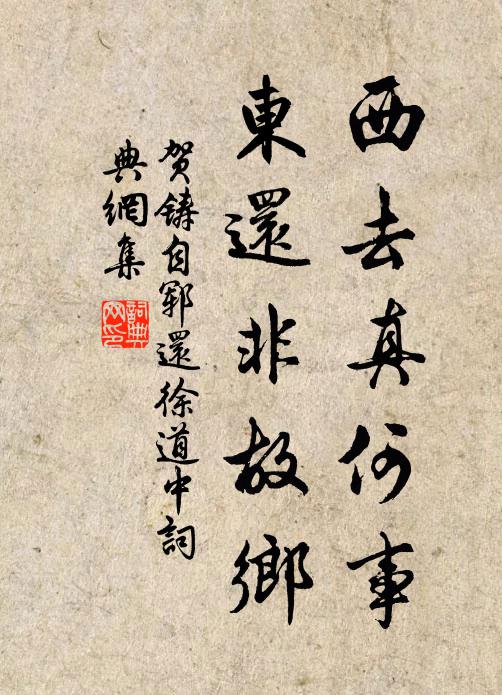 西去真何事
東還非故鄉
賀鑄自鄆還徐道中詞
典網集
詞典
网印